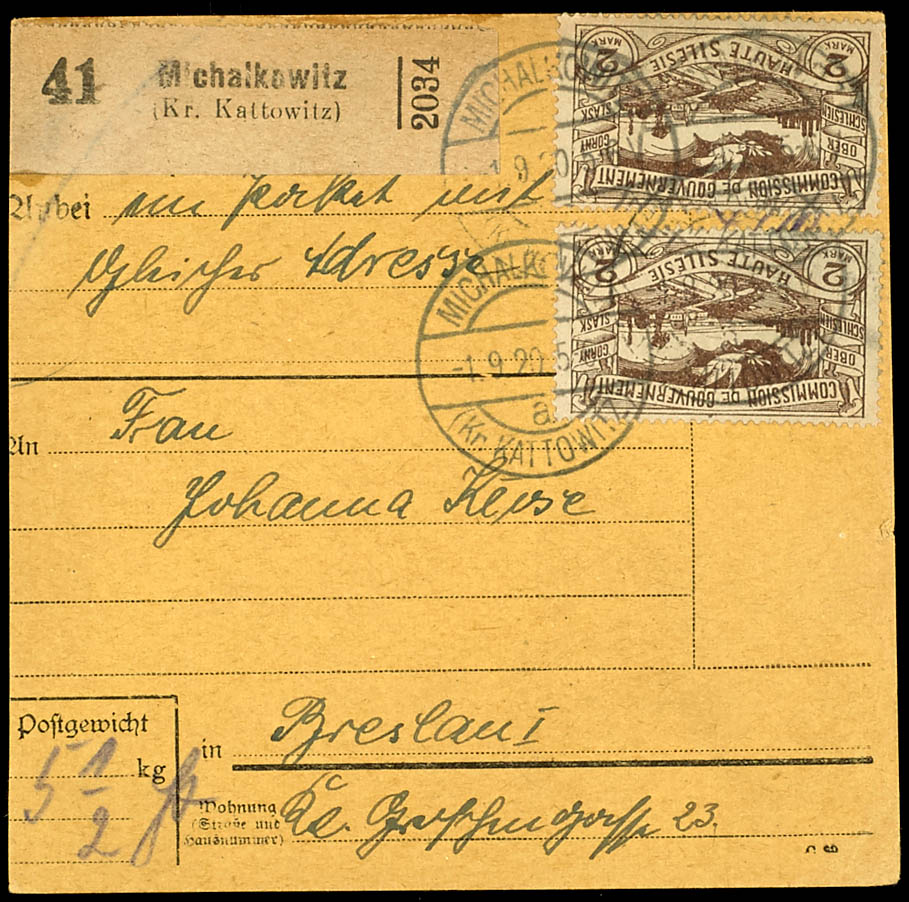 41 Michalkowitz
(Kr. Kattowitz)
2034
2 MARK HAUTE SILESIE 2 MARK
GORNY SLASK OBER SCHLESIEN
COMMISSION DE GOUVERNEMENT
2 MARK HAUTE SILESIE 2 MARK
GORNY SLASK OBER SCHLESIEN
COMMISSION DE GOUVERNEMENT
MICHALKO
9.20.5
MICHALKO
-1.9.20.5
a.
(Kr. KATTOWITZ)
bei ein Paket mit
gleicher Adresse
An Frau
Johanna
Postgewicht
5 1/2 kg
in Breslau I
Wohnung
(Straße und
Hausnummer)
Kl. Groschengasse 23.